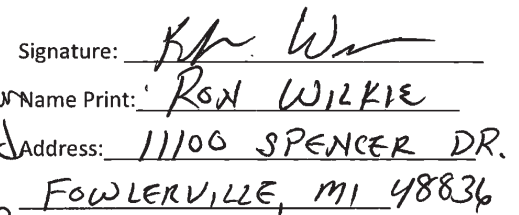 Signature:
Name Print: RON WILKIE
Address: 11100 SPENCER DR.
FOWLERVILLE, MI 48836